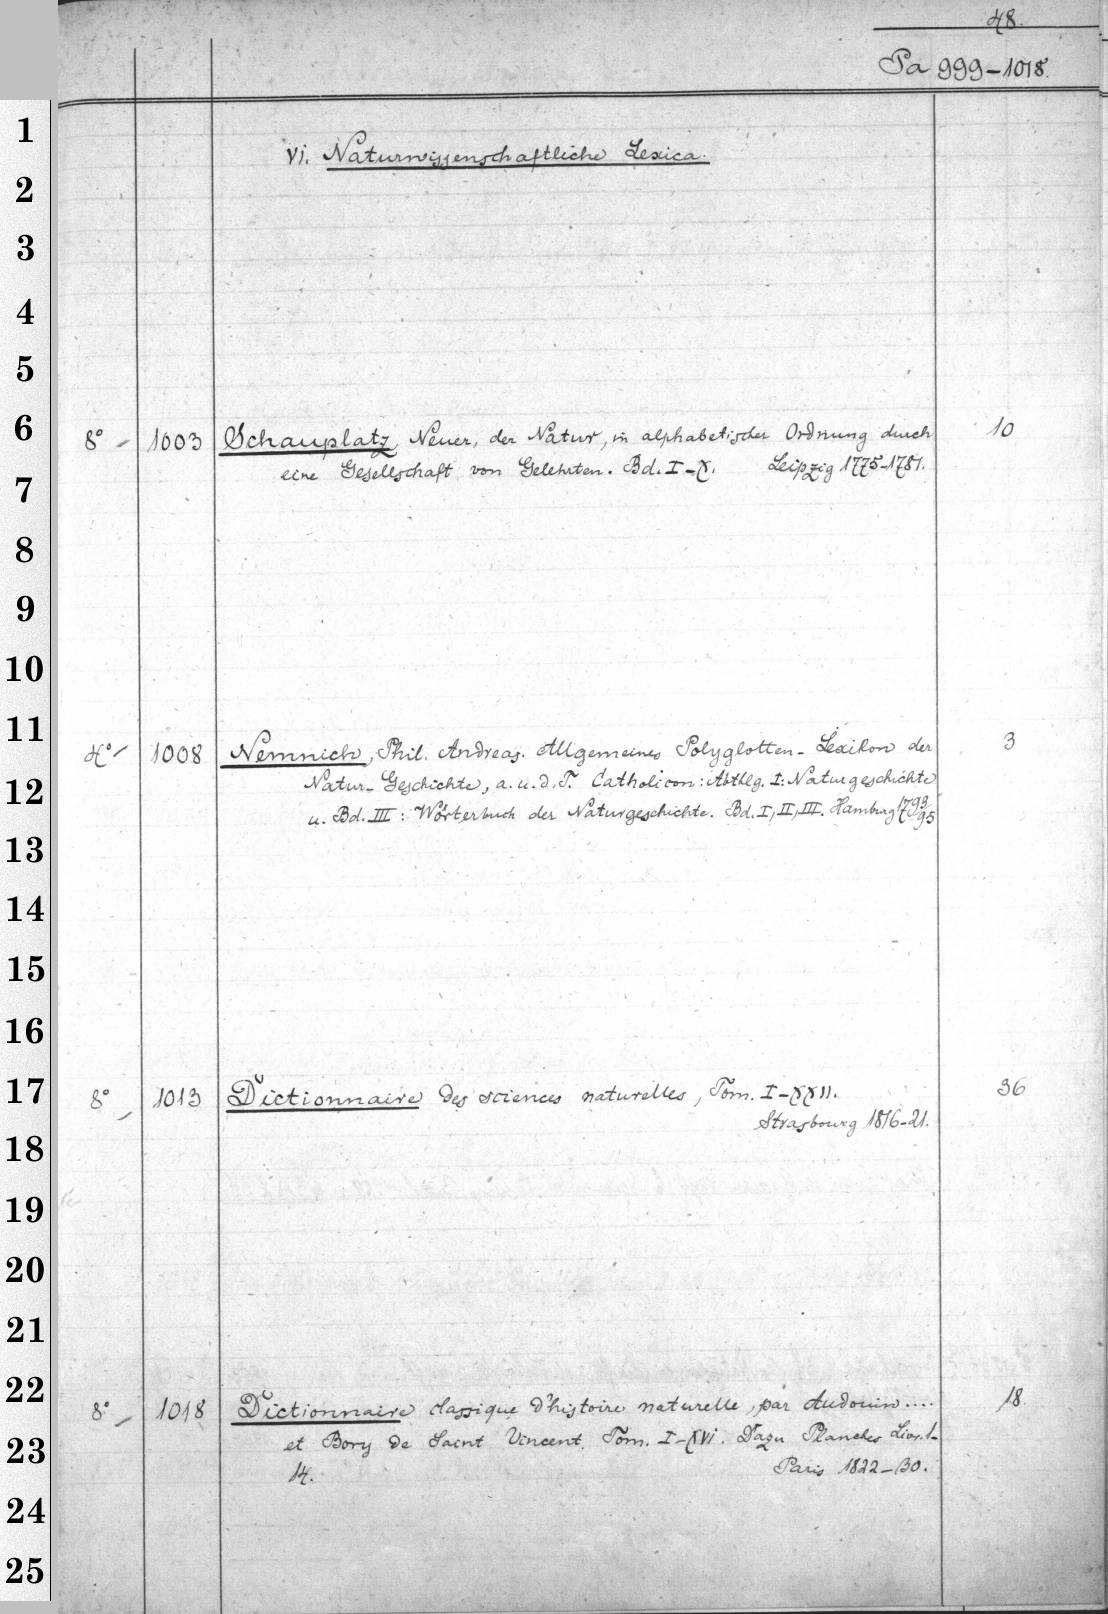 48.
Pa 999-1018.
VI. Naturwissenschaftliche Lexica.
8° 1003 Schauplatz, Neuer, der Natur, in alphabetischer Ordnung durch 10
eine Gesellschaft von Gelehrten. Bd. I-X. Leipzig 1775-1781.
4° 1008 Nemnich, Phil. Andreas. Allgemeines Polyglotten-Lexikon der 3
Natur-Geschichte, a.u.d.T. Catholicon: Abthlg. I: Naturgeschichte
u. Bd. III: Wörterbuch der Naturgeschichte. Bd. I, II, III. Hamburg 1793/95
8° 1013 Dictionnaire des sciences naturelles, Tom. I-XXII. 36
Strasbourg 1816-21.
8° 1018 Dictionnaire classique d'histoire naturelle, par Audouin.... 18.
et Bory de Saint Vincent. Tom. I-XVI. Dazu Planches Livr. 1-
14. Paris 1822-30.
1
2
3
4
5
6
7
8
9
10
11
12
13
14
15
16
17
18
19
20
21
22
23
24
25